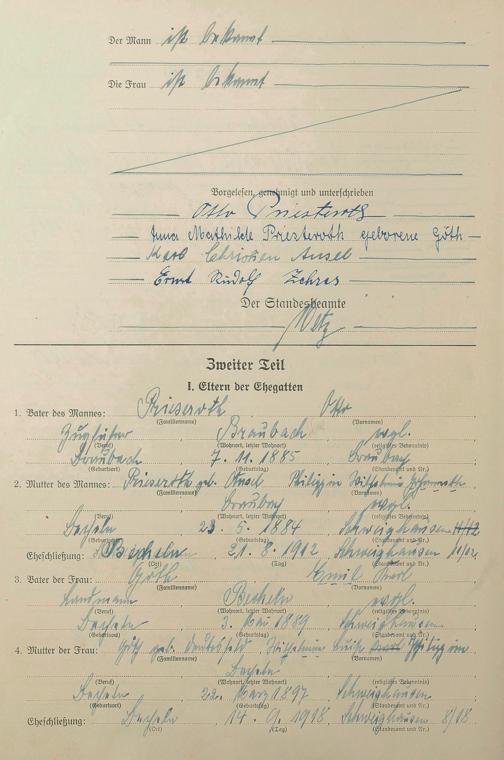 Der Mann ist bekannt
Die Frau ist bekannt
Vorgelesen, genehmigt und unterschrieben
Otto Priesteroth
Anna Mathilde Priesteroth geborene Göth
Karl Christian Ansel
Ernst Rudolf Zehres
Der Standesbeamte
Metz
Zweiter Teil
I. Eltern der Ehegatten
1. Vater des Mannes: Prieseroth Otto
(Familienname) (Vornamen)
Zugführer Braubach evgl.
(Beruf) (Wohnort, letzter Wohnort) (religiöses Bekenntnis)
Braubach 7. 11. 1885 Braubach
(Geburtsort) (Geburtstag) (Standesamt und Nr.)
2. Mutter des Mannes: Prieseroth geb. Ansel Philippin Wilhelmine
(Familienname) (Vornamen)
Braubach evgl.
(Wohnort, letzter Wohnort) (religiöses Bekenntnis)
Becheln 23. 5. 1884 Schweighausen
(Geburtsort) (Geburtstag) (Standesamt und Nr.)
Eheschließung: Becheln 21. 8. 1912 Schweighausen
(Ort) (Tag) (Standesamt und Nr.)
3. Vater der Frau: Göth Emil Karl
(Familienname) (Vornamen)
Landmann Becheln evgl.
(Beruf) (Wohnort, letzter Wohnort) (religiöses Bekenntnis)
Becheln 3. Mai 1889 Schweighausen
(Geburtsort) (Geburtstag) (Standesamt und Nr.)
4. Mutter der Frau: Göth geb. Wilhelmine Luise Philippine
(Familienname) (Vornamen)
Becheln
(Beruf) (Wohnort, letzter Wohnort) (religiöses Bekenntnis)
Becheln 22. März 1897 Schweighausen
(Geburtsort) (Geburtstag) (Standesamt und Nr.)
Eheschließung: Becheln 14. 9. 1918 Schweighausen 8/18
(Ort) (Tag) (Standesamt und Nr.)